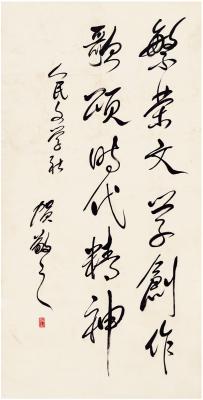 繁荣文学创作
歌颂时代精神
人民文学社
贺敬之